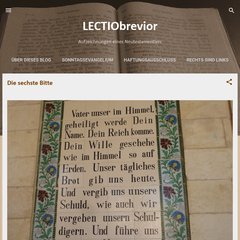 LECTIObrevior
Aufzeichnungen eines Neutestamentlers
ÜBER DIESES BLOG
SONNTAGSEVANGELIUM
HAFTUNGSAUSSCHLUSS
RECHTS SIND LINKS
Die sechste Bitte
Vater unser im Himmel,
geheiligt werde Dein
Name. Dein Reich komme.
Dein Wille geschehe
wie im Himmel so auf
Erden. Unser tägliches
Brot gib uns heute.
Und vergib uns unsere
Schuld, wie auch wir
vergeben unsern Schul-
digern. Und führe uns